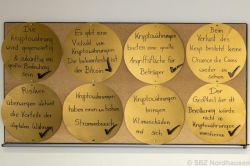 Die
Kryptowährung
wird gegenwärtig
& zukünftig ein
großer Bedeutung
Es gibt eine
Vielzahl von
Kryptowährungen
Die bekannteste ist
der Bitcoin
Kryptowährungen
bieten eine große
Angriffsfläche für
Betrüger
Beim
Verlust des
Keys besteht keine
Chance die Coins
wieder zu
sehen
Risiken
überwiegen aktuell
die Vorteile der
digitalen Währung
Kryptowährungen
haben einen hohen
Stromverbrauch
Kryptowährungen
ziehen
Klimaschäden
mit sich
Der
Großteil der
Bevölkerung würde
nicht in
Kryptowährungen
investieren
© SBZ Nordhausen